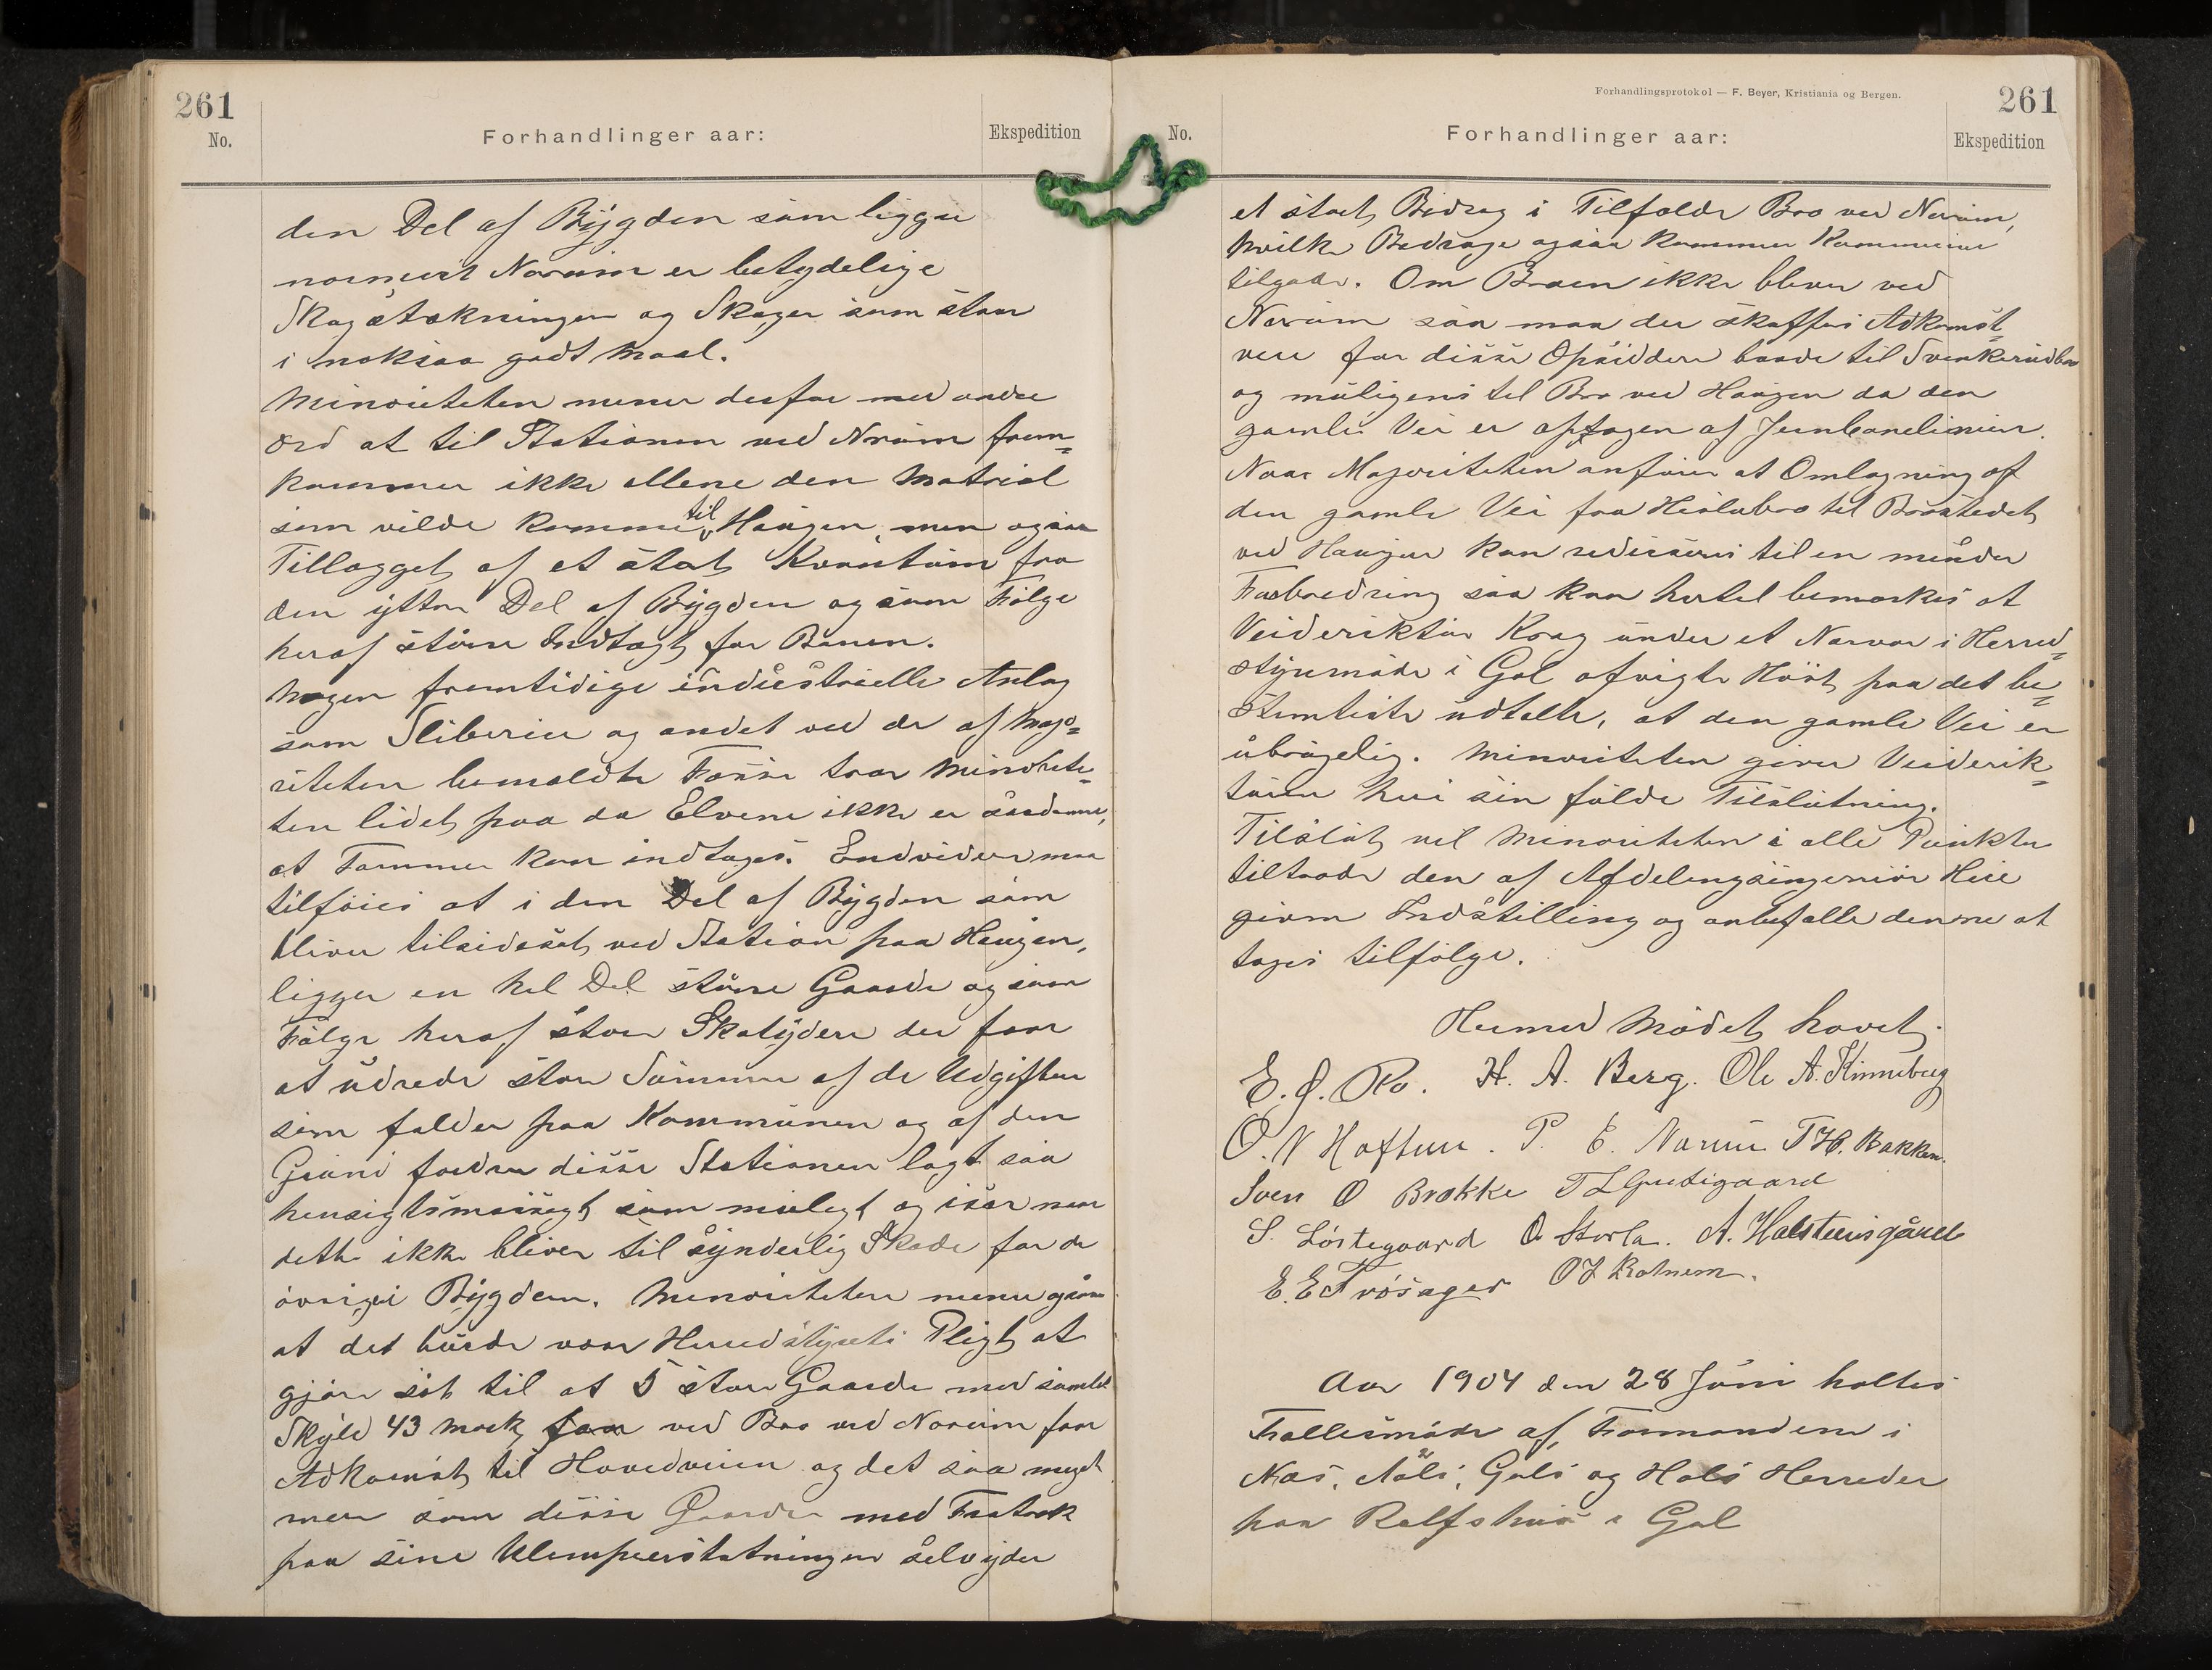 261
No.
Forhandlinger aar:
Ekspedition
den Del af Bygden som ligger
nærmest Narum er betydelige
Skogstrækninger og Skoger som staar
i noksaa godt Maal.
Minoriteten mener derfor med andre
Ord at til Stationen ved Narum frem=
kommer ikke allene den Matrial
som vilde komme til Haugen, men ogsaa
Tillægget af et stort Kvantum fra
den yttre Del af Bygden og som Følge
heraf større Indtægt for Banen.
Nogen fremtidige industrielle Anlæg
som Sliberier og andet ved de af Majo=
riteten bemældte Fosse tror Minorite=
ten lidet paa da Elvene ikke er saadanne,
at Tømmer kan indtages. Endvidere maa
tilføies at i den Del af Bygden som
bliver tilsidesat ved Station paa Haugen,
ligger en hel Del større Gaarde og som
Følge heraf store Skatydere der faar
at udrede store Summer af de Udgifter
som falder paa Kommunen og af den
Grund fordrer disse Stationen lagt saa
hensigtsmæssigt som muligt og især naar
dette ikke bliver til synderlig Skade for de
øvrige i Bygden. Minoriteten mener ogsaa
at det burde være Herredstyrets Pligt at
gjøre sit til at 5 store Gaarde med samlet
Skyld 43 Mark faar ved Bro ved Narum faar
Adkomst til Hovedveien og det saa meget
mer som disse Gaarde med Fratræk
paa sine Ulempeerstatninger selv yder
Forhandlingsprotokol — F. Beyer, Kristiania og Bergen.
261
No.
Forhandlinger aar:
Ekspedition
et stort Bidrag i Tilfælde Bro ved Narum,
hvilke Bidrage ogsaa kommer Kommunen
tilgode. Om Broen ikke bliver ved
Narum saa maa der skaffes Adkomst=
veie for disse Opsiddere baade til Svenkerudbro
og muligens til Bro ved Haugen da den
gamle Vei er optagen af Jernbanelinien.
Naar Majoriteten anfører at Omlægning af
den gamle Vei fra Heslabro til Brostedet
ved Haugen kan reduseres til en mindre
Forbedring saa kan hertil bemærkes at
Veidirektør Krag under et Nærvær i Herred=
styremøde i Gol afvigte Høst paa det be=
stemteste udtalte, at den gamle Vei er
ubrugelig. Minoriteten giver Veidirek=
tøren heri sin fulde Tilslutning.
Tilslut vil Minoriteten i alle Punkter
tiltræde den af Afdelingsingeniør Hiie
givne Indstilling og anbefalle denne at
tages tilfølge.
Hermed Mødet hævet.
E. O. Ro. H. A. Berg. Ole A. Kinneberg
O. N Haftun. P. E. Narum T H. Bakken.
Sven O Brække T L Grutigaard
S. Løstegaard O Storla. A. Halsteinsgård
E. E Trøsager O J Rotnem.
Aar 1904 den 28 Juni holtes
Fællesmøde af Formændene i
Næs, Aals, Gols og Hols Herreder
paa Rolfshus i Gol